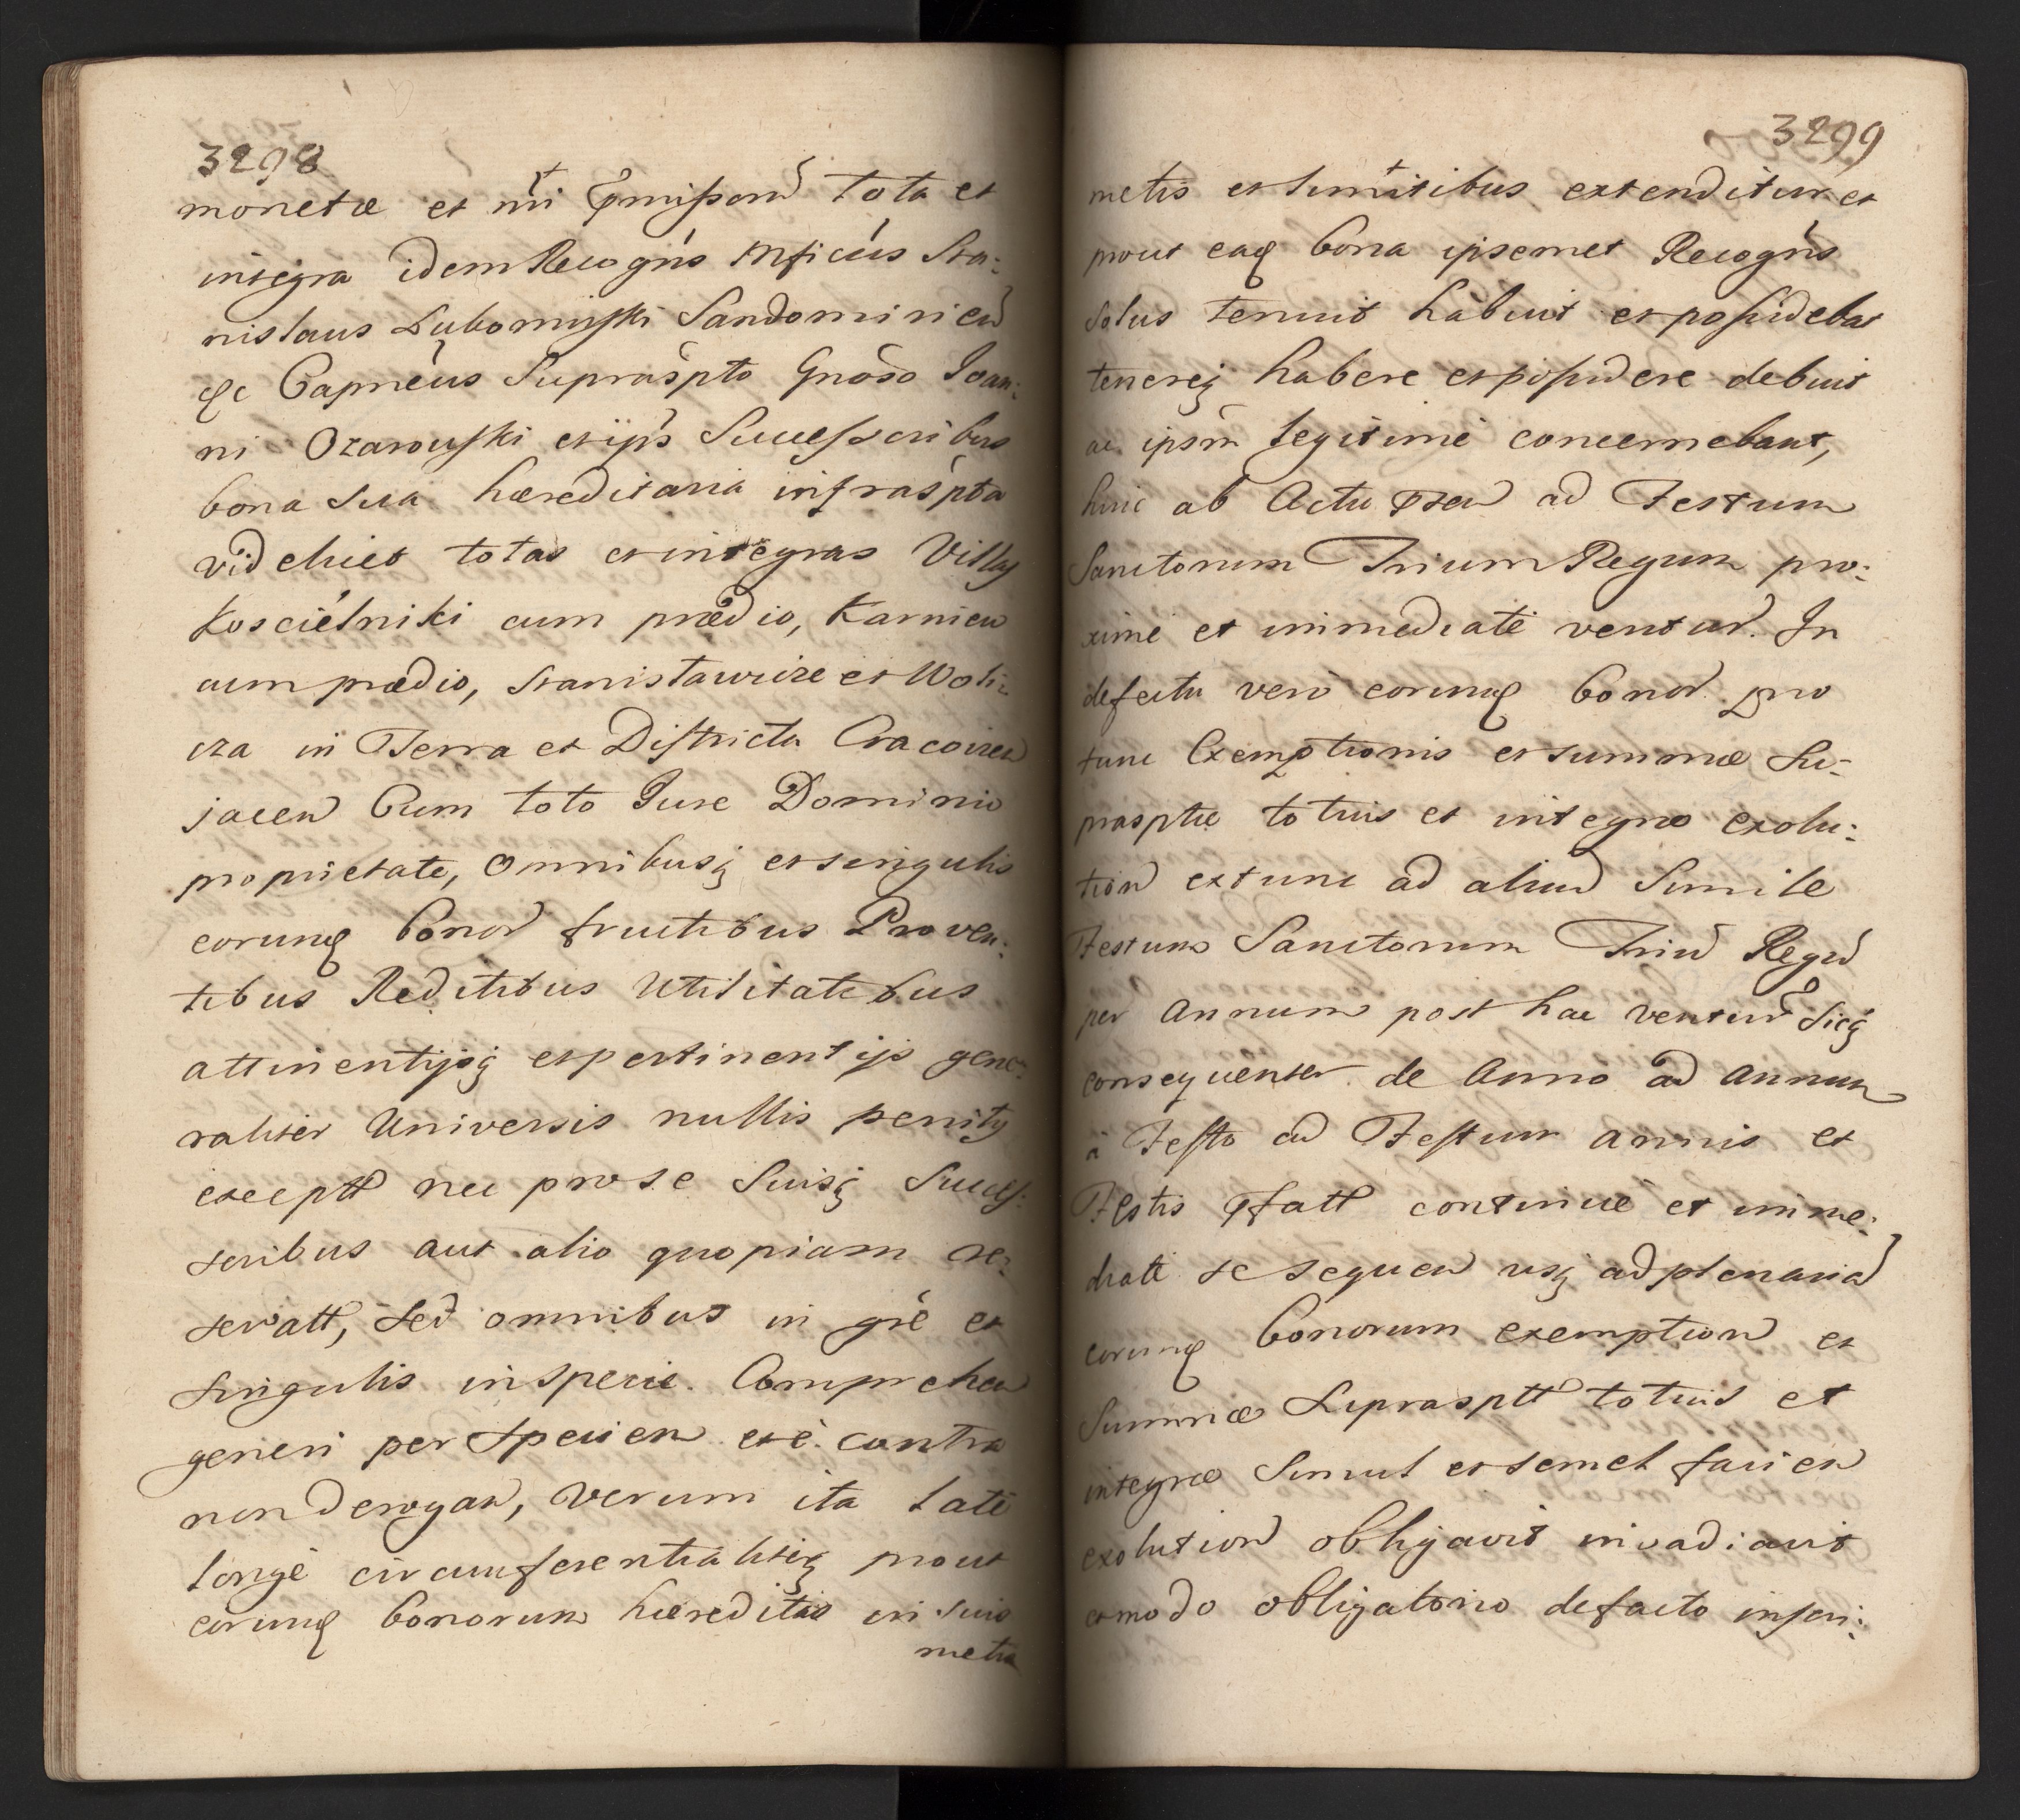 3298
monetæ et nri pmissorum tota et
integra idem Recogns Mficus Sta:
nislaus Lubomirski Sandomirien
&c Capneus Supraspto Gnoso Joan:
ni Ozarowski et ijs Successoribus
bona sua hæreditaria infraspta
vid elicet totas et integras Villas
Koscielniki cum prædio, Karniew
cum prædio, Stanisławice et Woli:
cza in Terra et Districtu Cracovien
jacen Cum toto Jure Dominio
proprietate, Omnibusq et singulis
eorunq bonor fructibus Proven:
tibus Reditibus Utilitatibus
attinentijsq et pertinentijs gene:
raliter Universis nullis penitus
exceptt nec pro se Suisq Succes:
soribus aut alio quopiam re:
servatt, sed omnibus in gre et
singulis in specie. Comprehen
generi per Speciem et è contra
non derogan, Verum ita late
longè circumferentialiterq prout
eorunq bonorum hæreditas in suis
metis
3299
metis et limitibus extenditur et
prout eaq bona ipsemet Recogns
solus tenuit habuit et possidebat
tenereq habere et possidere debuit
ac ipsm legitimè concernebant,
hinc ab Actu pnen ad Festum
Sanctorum Trium Regum pro:
ximè et immediatè ventur. In
defectu verò eorunq bonor pro
tunc Exemptionis et summæ Su:
prasptæ totius et integræ exolu:
tion extunc ad aliud Simile
Festum Sanctorum Trium Regum
per Annum post hac ventur Sicq
consequenter de Anno ad annum
à Festo ad Festum annis et
Festis pfatt continuè et imme:
diatè se sequen usq ad plenariam
eorunq bonorum exemption et
Summæ Suprasptt totius et
integræ Simul et semel facien
exolution obligavit invadiavit
et modo obligatorio de facto inscri: